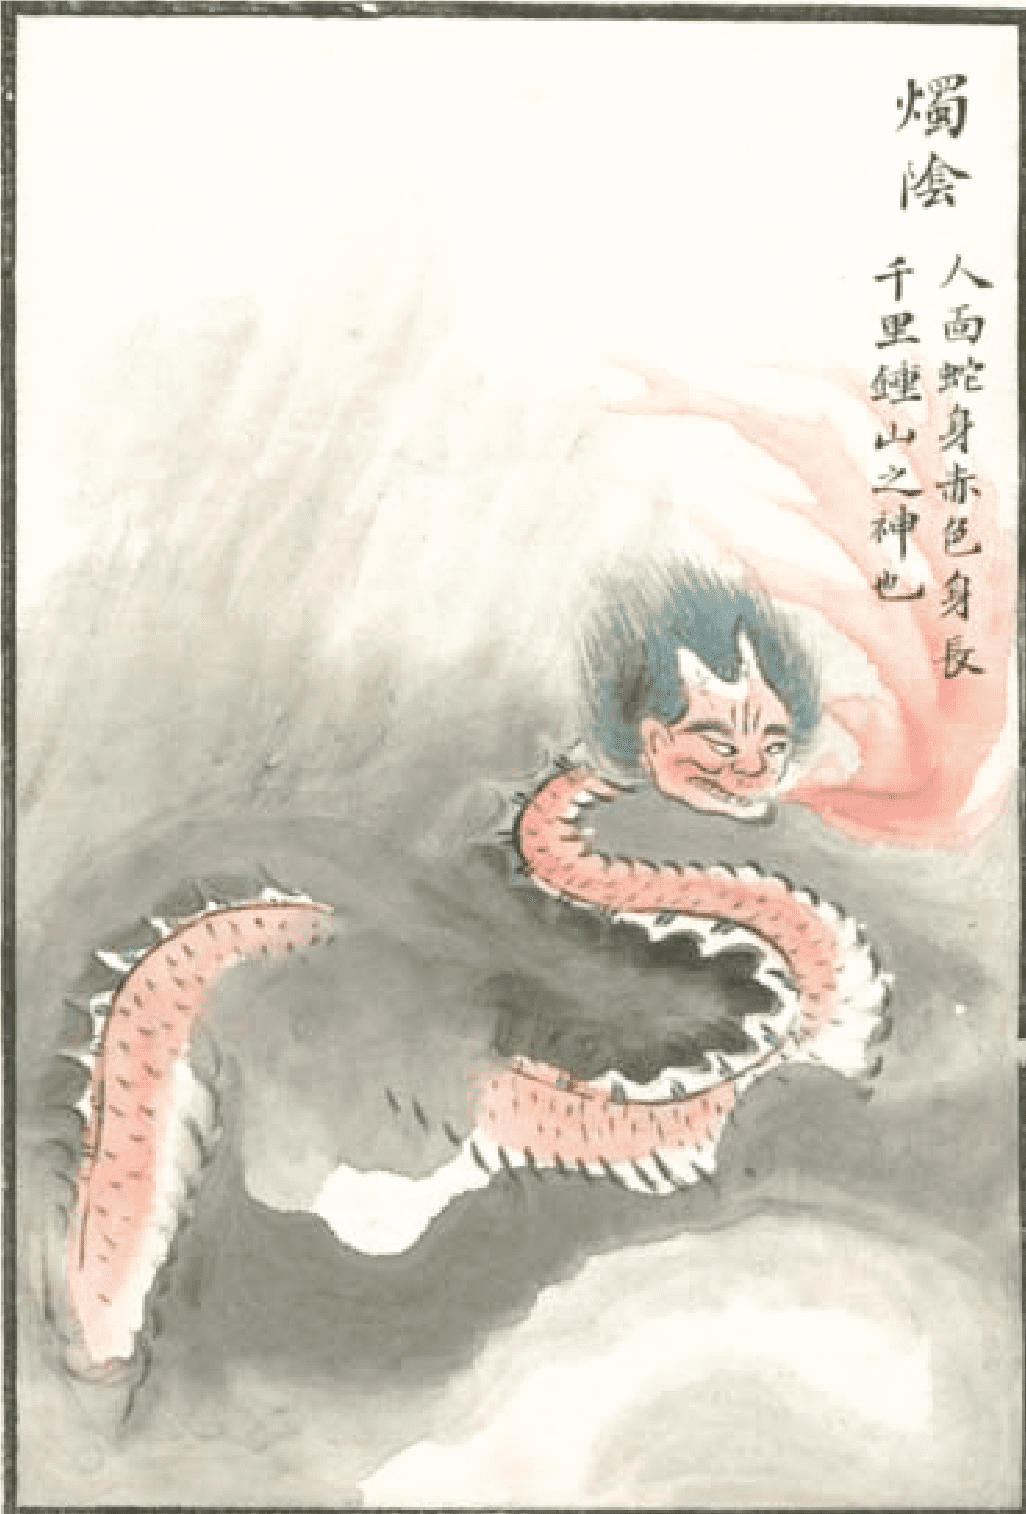 燭陰
人面蛇身赤色身長
千里鍾山之神也